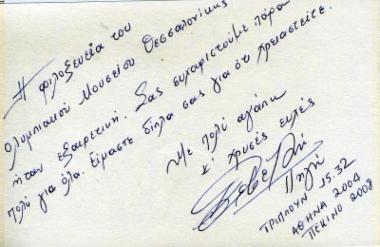 Η φιλοξενεία του
Ολυμπιακού Μουσείου Θεσσαλονίκης
ήταν εξαιρετική. Σας ευχαριστούμε πάρα
πολύ για όλα. Είμαστε δίπλα σας για ότι χρειαστείτε.
Με πολύ αγάπη
κ' χρυσές ευχές
Πηγή
ΤΡΙΠΛΟΥΝ 15.32
ΑΘΗΝΑ 2004
ΠΕΚΙΝΟ 2008